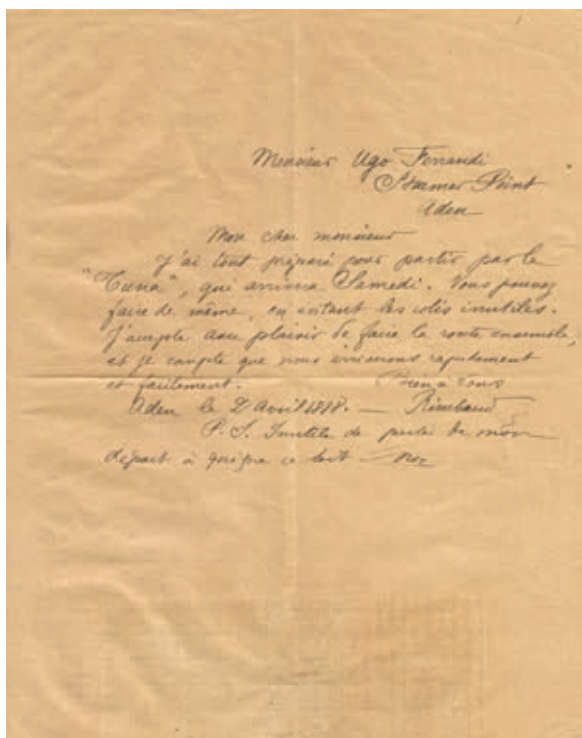 Monsieur Ugo Ferrandi
Steamer Point
Aden
Mon cher monsieur
J'ai tout préparé pour partir par le
"Tuna", qui arrivera Samedi. Vous pouvez
faire de même, en évitant les colis inutiles.
J'accepte avec plaisir de faire la route ensemble,
et je compte que nous arriverons rapidement
et facilement. Bien à vous
Aden le 2 Avril 1888. — Rimbaud
P. S. Inutile de parler de mon
départ à qui que ce soit —